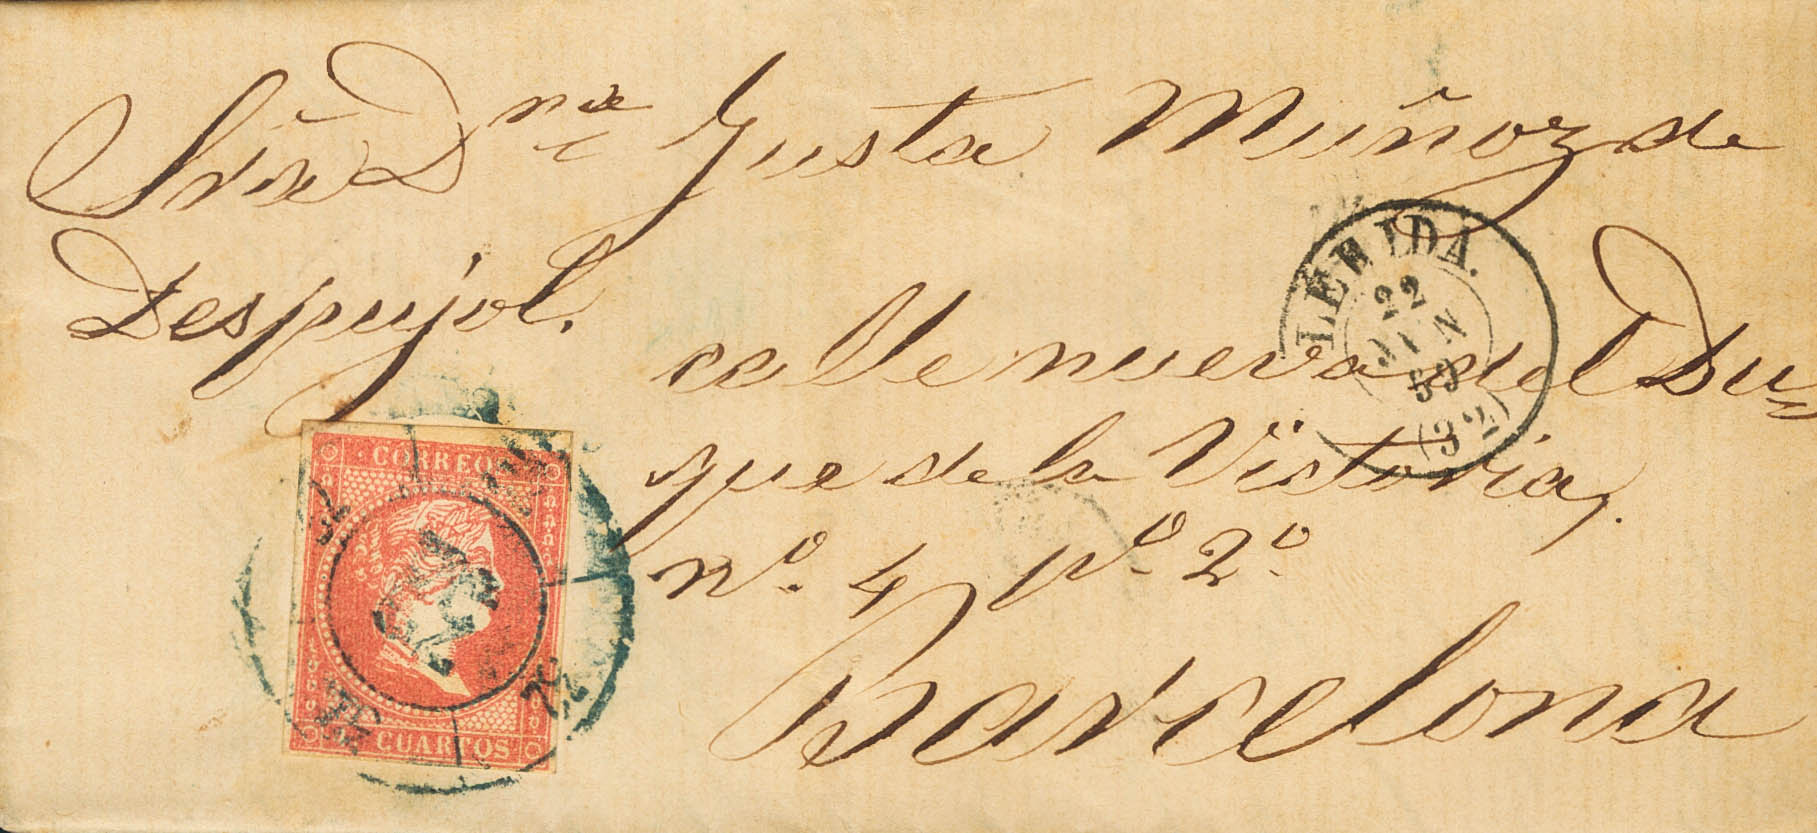 Sra Dña Justa Muñoz de
Despujol.
calle nueva del Du-
que de la Victoria,
nº 4 pº 2º
Barcelona
LERIDA.
22
JUN
59
(32)
CORREOS
CUARTOS